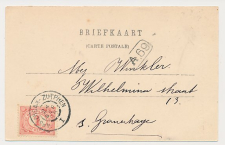 BRIEFKAART
(CARTE POSTALE)
69
Mej Winkler
Wilhelmina straat
13
s. Gravenhage
ZUTPHEN